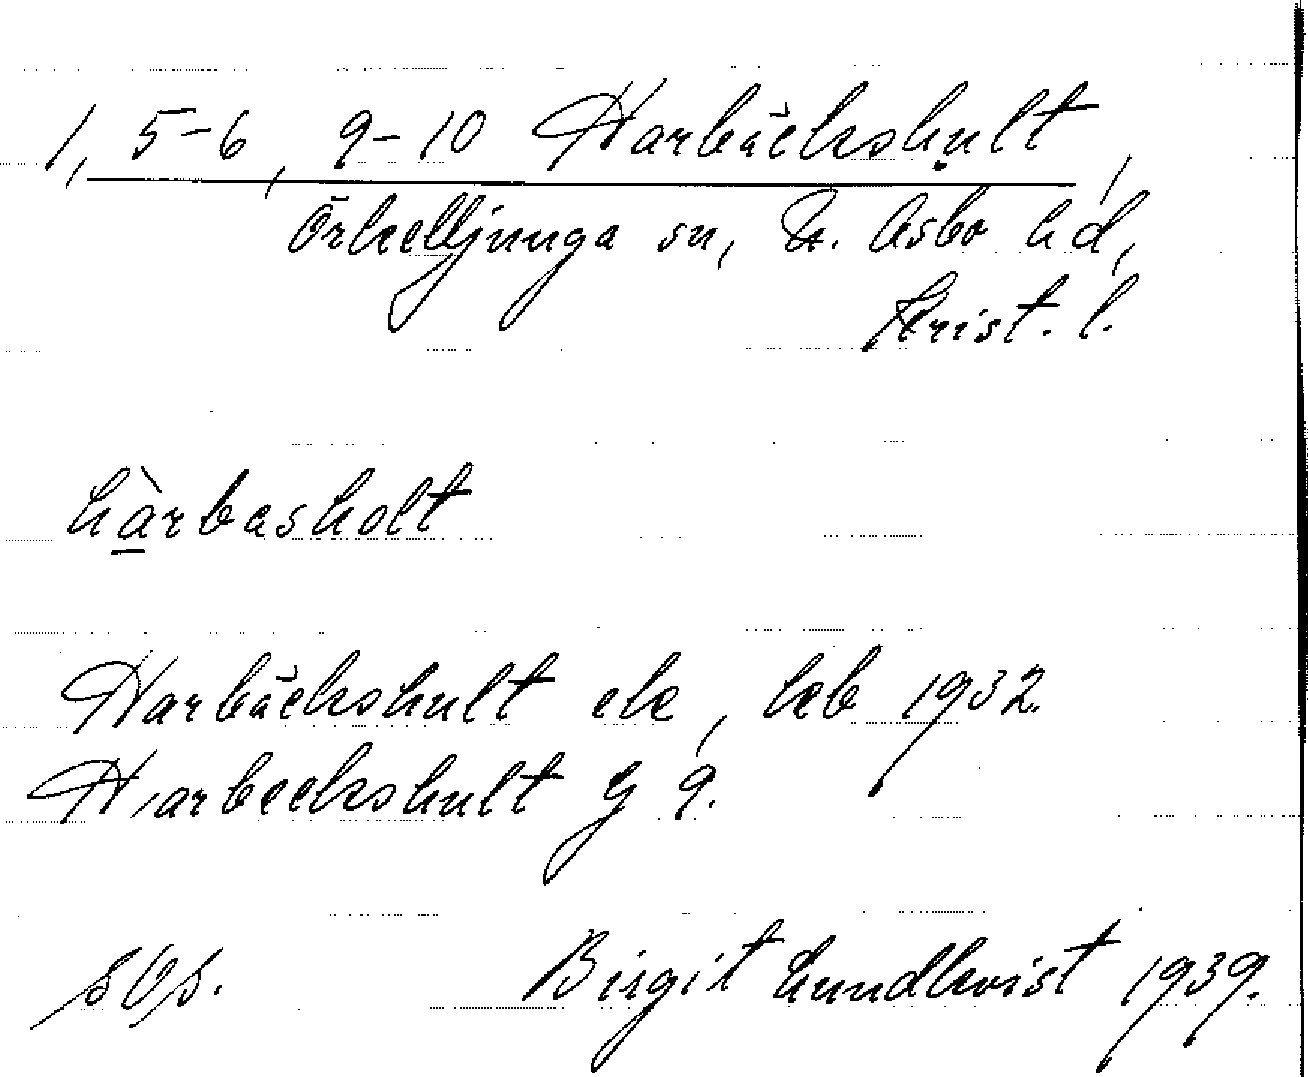 1, 5-6, 9-10 Harbäckshult,
Örkelljunga sn, N. Åsbo hd,
Krist. l.
hàrbasholt
Harbäckshult ek, kb 1932.
Harbeckshult G 9.
Birgit Lundkvist 1939.